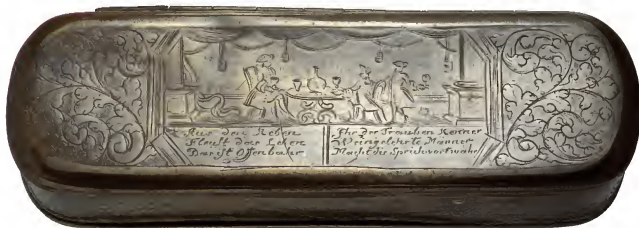 Aus den Reben
Fleust das Leben
Dar ist Offenbahr
Ihr der Trauben Korner
Weingelehrte Manner
Macht die Sprichvort wahr